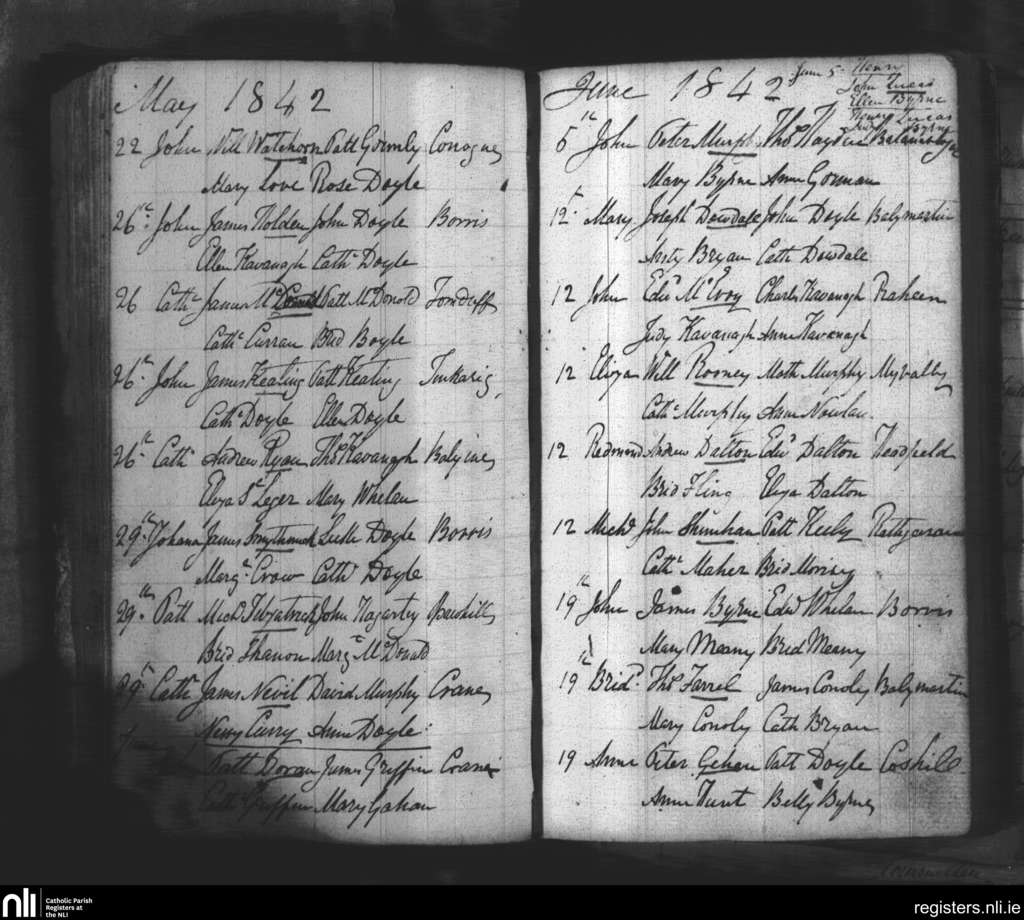 May 1842
22 John Will Watchorn Patt Gormly Conogue
Mary Love Rose Doyle
26th John James Holden John Doyle Borris
Ellen Kavanagh Cathe Doyle
26 Cathe James Patt McDonold Tomduff
Cathe Curran Brid Boyle
26th John James Keating Patt Keating
Cathe Doyle Ellen Doyle
26th Cath Andrew Ryan Thos Kavanagh Balyine
Elyza St Leger Mary Whelan
29th Johana James Luke Doyle Borris
Margt Crow Cath Doyle
29th Patt Mich Fitzpatrick John Hagarty
Brid Shanon Margt McDonald
29th Cathe James Nevil David Murphy Crane
Nency Curry Anne Doyle
June
Patt Doran James Griffin Crane
Cathe Griffin Mary Gahan
June 1842
June 5 Henry
John Lucas
Ellen Byrne
Henry Lucas
Judy Byrne
5th John Peter Murph Thos Hayden
Mary Byrne Anne Gorman
12th Mary Joseph Dowdale John Doyle Balymartin
Anty Bryan Cath Dowdale
12 John Edwd McEvoy Charls Kavanagh Raheen
Judy Kavanagh Anne Kavanagh
12 Eliza Will Rooney Math Murphy Myvally
Cathe Murphy Anne Nowlan
12 Redmond Andrew Dalton Edwd Dalton
Brid Fling Elyza Dalton
12 Michl John Patt Keely Rathgeran
Cathe Maher Brid Morisey
19th John James Byrne Edwd Whelan Borris
Mary Meany Brid Meany
19th Bridt Thos Farrel James Conoly Balymartin
Mary Conoly Cath Bryan
19 Anne Peter Gehan Patt Doyle Coshill
Anne Betty Byrne
nli
Catholic Parish
Registers at
the NLI
registers.nli.ie